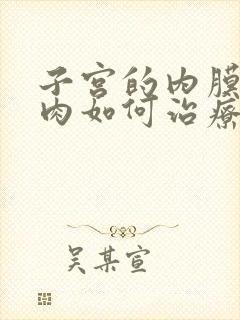 子宫的内膜
肉如何治療
吴某宣